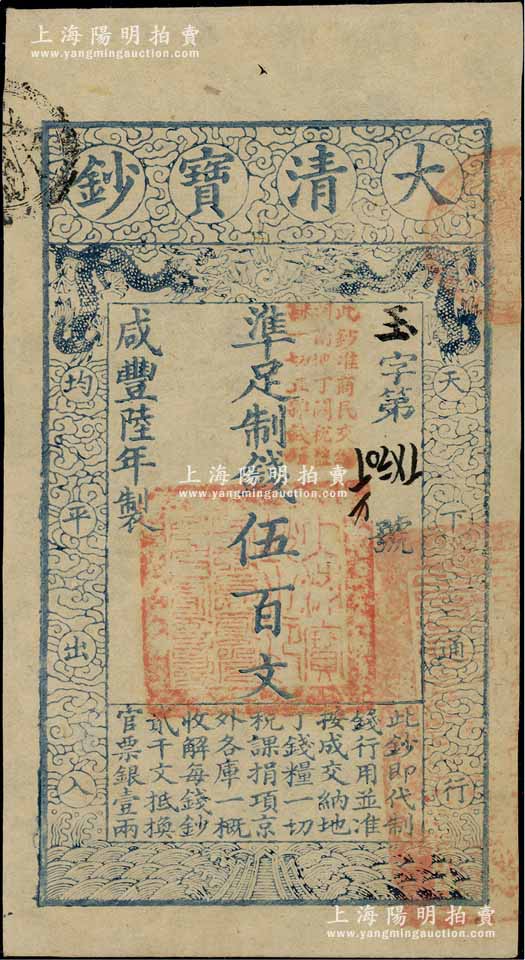 上海陽明拍賣
www.yangmingauction.com
大清寶鈔
天下通行
均平出入
玉字第
號
準足制錢伍百文
咸豐陸年製
此鈔即代制
錢行用並准
按成交納地
丁錢糧一切
稅課捐項京
外各庫一概
收解每錢鈔
貳千文抵換
官票銀壹兩
上海陽明拍賣
www.yangmingauction.com
上海陽明拍賣
www.yangmingauction.com